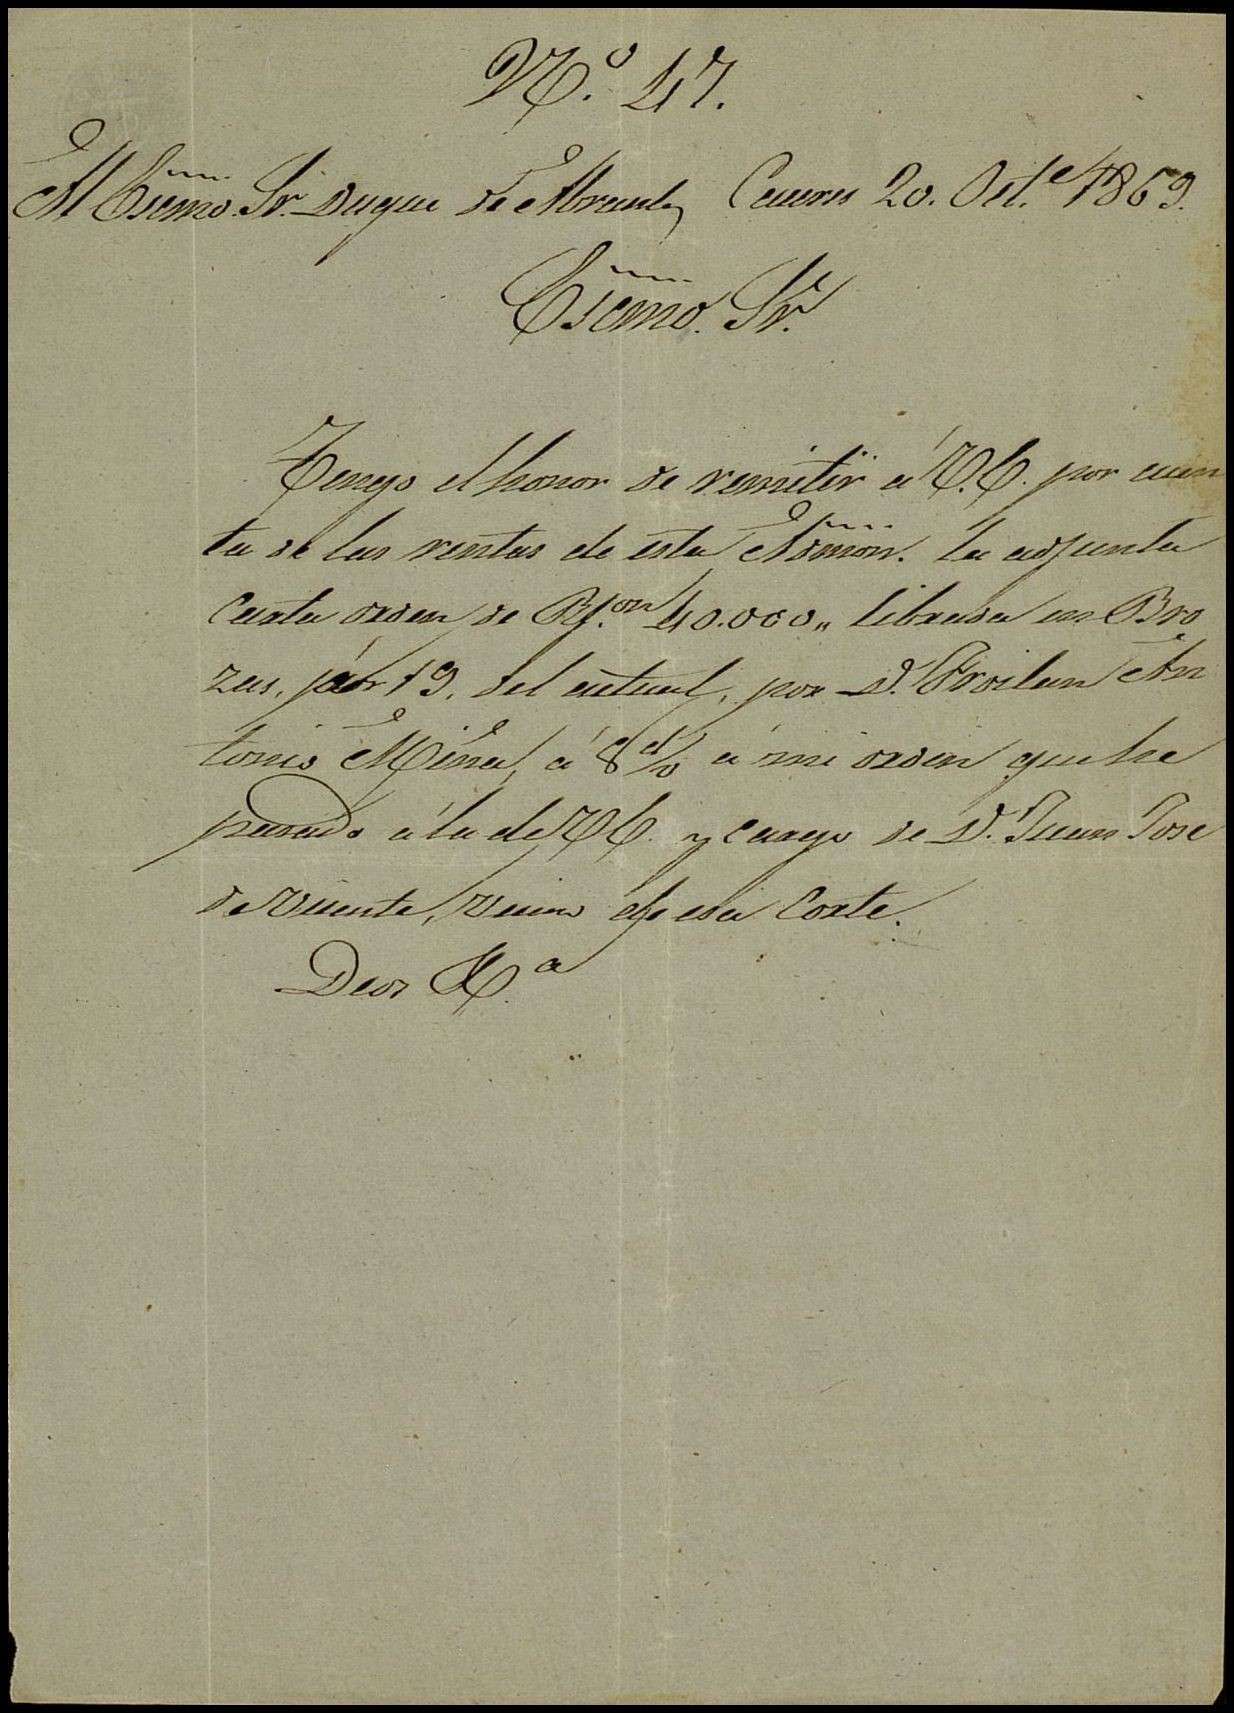 N.º 47.
Al Escmo. Sr. Duque de Abrantes Caceres 20. Oct.e 1869.
Escmo. Sr.
Tengo el honor de remitir á V.E. por cuen
ta de las rentas de esta Admon. la adjunta
carta orden de Rs.on 40.000,, librada en Bro
zas, por 19, del actual, por D. Froilan An
tonio Mina, á 8 d/v á mi orden que he
pasado á la de V.E. y cargo de D. Juan Jose
de Vicente, vecino de esa Corte.
Dios &.a